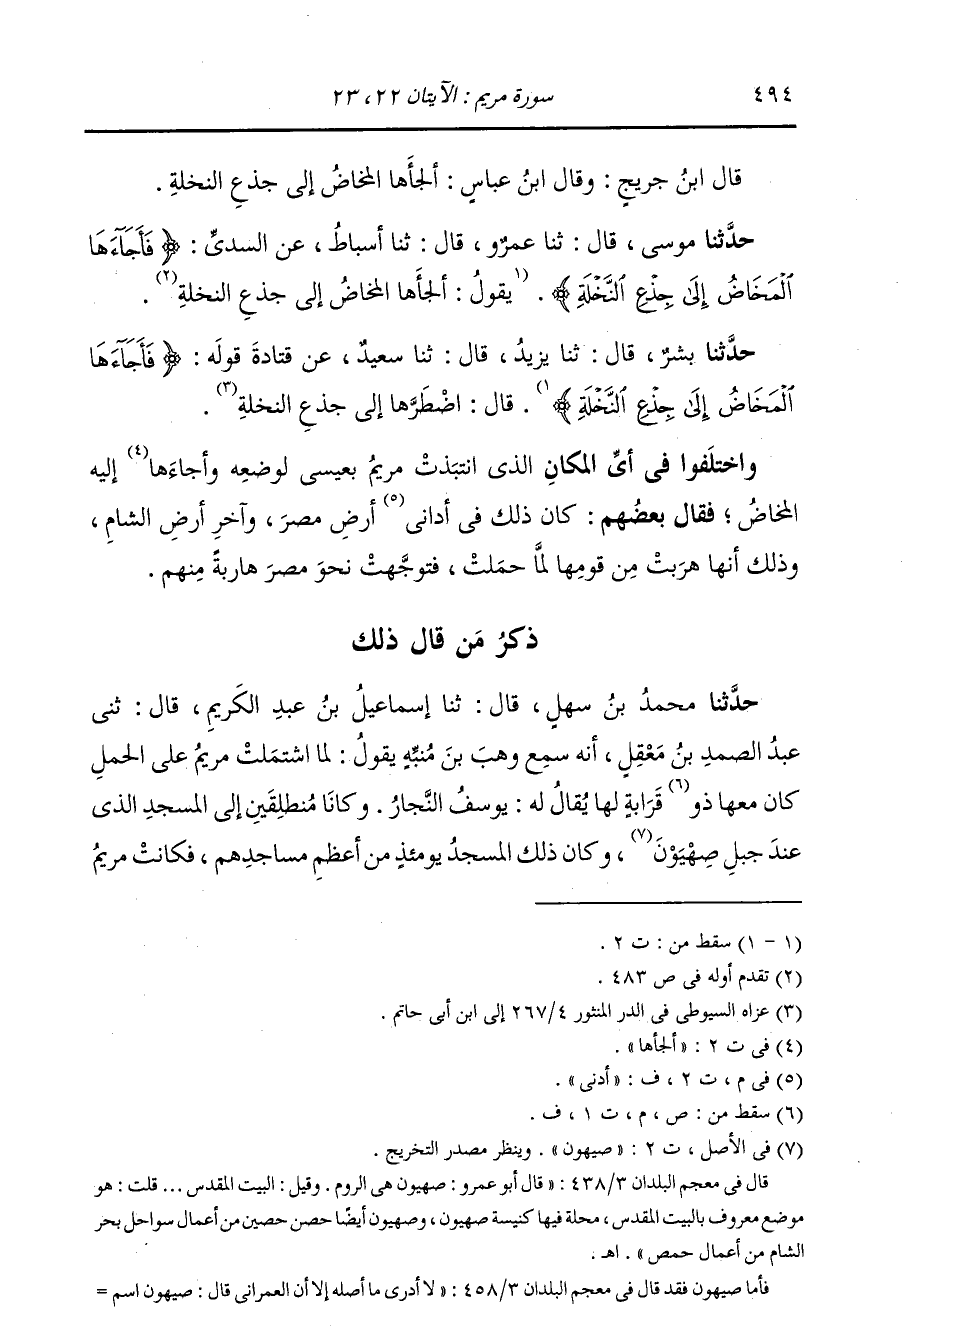 ٤٩٤ سورة مريم : الآيتان ٢٢، ٢٣
قال ابنُ جريجٍ : وقال ابنُ عباسٍ : ألجأَها المخاضُ إلى جذعِ النخلةِ .
حدَّثنا موسى ، قال : ثنا عمرٌو ، قال : ثنا أسباطُ ، عن السدىِّ : ﴿ فَأَجَآءَهَا
ٱلْمَخَاضُ إِلَىٰ جِذْعِ ٱلنَّخْلَةِ ﴾ . (١ يقولُ : ألجأَها المخاضُ إلى جذعِ النخلةِ(٢) .
حدَّثنا بشرٌ ، قال : ثنا يزيدُ ، قال : ثنا سعيدٌ ، عن قتادةَ قولَه : ﴿ فَأَجَآءَهَا
ٱلْمَخَاضُ إِلَىٰ جِذْعِ ٱلنَّخْلَةِ ﴾ ١) . قال : اضْطَرَّها إلى جذعِ النخلةِ(٣) .
واختلَفوا فى أىِّ المكانِ الذى انتبَذتْ مريمُ بعيسى لوضعِه وأجاءَها(٤) إليه
المخاضُ ؛ فقال بعضُهم : كان ذلك فى أدانى(٥) أرضِ مصرَ ، وآخرِ أرضِ الشامِ ،
وذلك أنها هرَبتْ مِن قومِها لمَّا حمَلتْ ، فتوجَّهتْ نحوَ مصرَ هاربةً مِنهم .
ذكرُ مَن قال ذلك
حدَّثنا محمدُ بنُ سهلٍ ، قال : ثنا إسماعيلُ بنُ عبدِ الكَريمِ ، قال : ثنى
عبدُ الصمدِ بنُ مَعْقِلٍ ، أنه سمِع وهبَ بنَ مُنبِّهٍ يقولُ : لما اشتمَلتْ مريمُ على الحملِ
كان معها ذو(٦) قَرَابةٍ لها يُقالُ له : يوسفُ النَّجارُ . وكانَا مُنطلِقَينِ إلى المسجدِ الذى
عندَ جبلِ صِهْيَوْنَ(٧) ، وكان ذلك المسجدُ يومئذٍ من أعظمِ مساجدِهم ، فكانتْ مريمُ
(١ - ١) سقط من : ت ٢ .
(٢) تقدم أوله فى ص ٤٨٣ .
(٣) عزاه السيوطى فى الدر المنثور ٢٦٧/٤ إلى ابن أبى حاتم .
(٤) فى ت ٢ : «ألجأها» .
(٥) فى م ، ت ٢ ، ف : «أدنى» .
(٦) سقط من : ص ، م ، ت ١ ، ف .
(٧) فى الأصل ، ت ٢ : «صيهون» . وينظر مصدر التخريج .
قال فى معجم البلدان ٤٣٨/٣ : « قال أبو عمرو : صهيون هى الروم . وقيل : البيت المقدس ... قلت : هو
موضع معروف بالبيت المقدس ، محلة فيها كنيسة صهيون ، وصهيون أيضًا حصن حصين من أعمال سواحل بحر
الشام من أعمال حمص » . اهـ .
فأما صيهون فقد قال فى معجم البلدان ٤٥٨/٣ : « لا أدرى ما أصله إلا أن العمرانى قال : صيهون اسم =